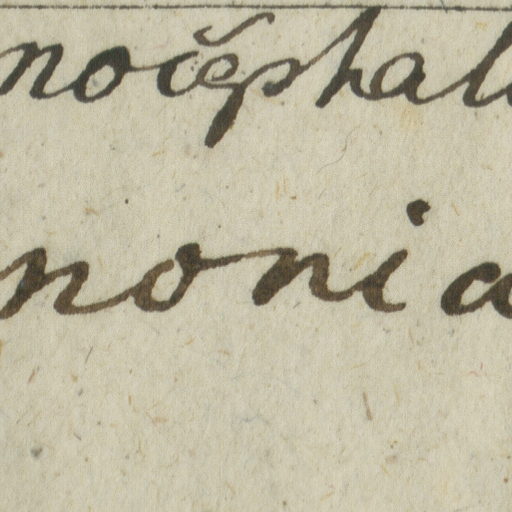 nocephal
nonia